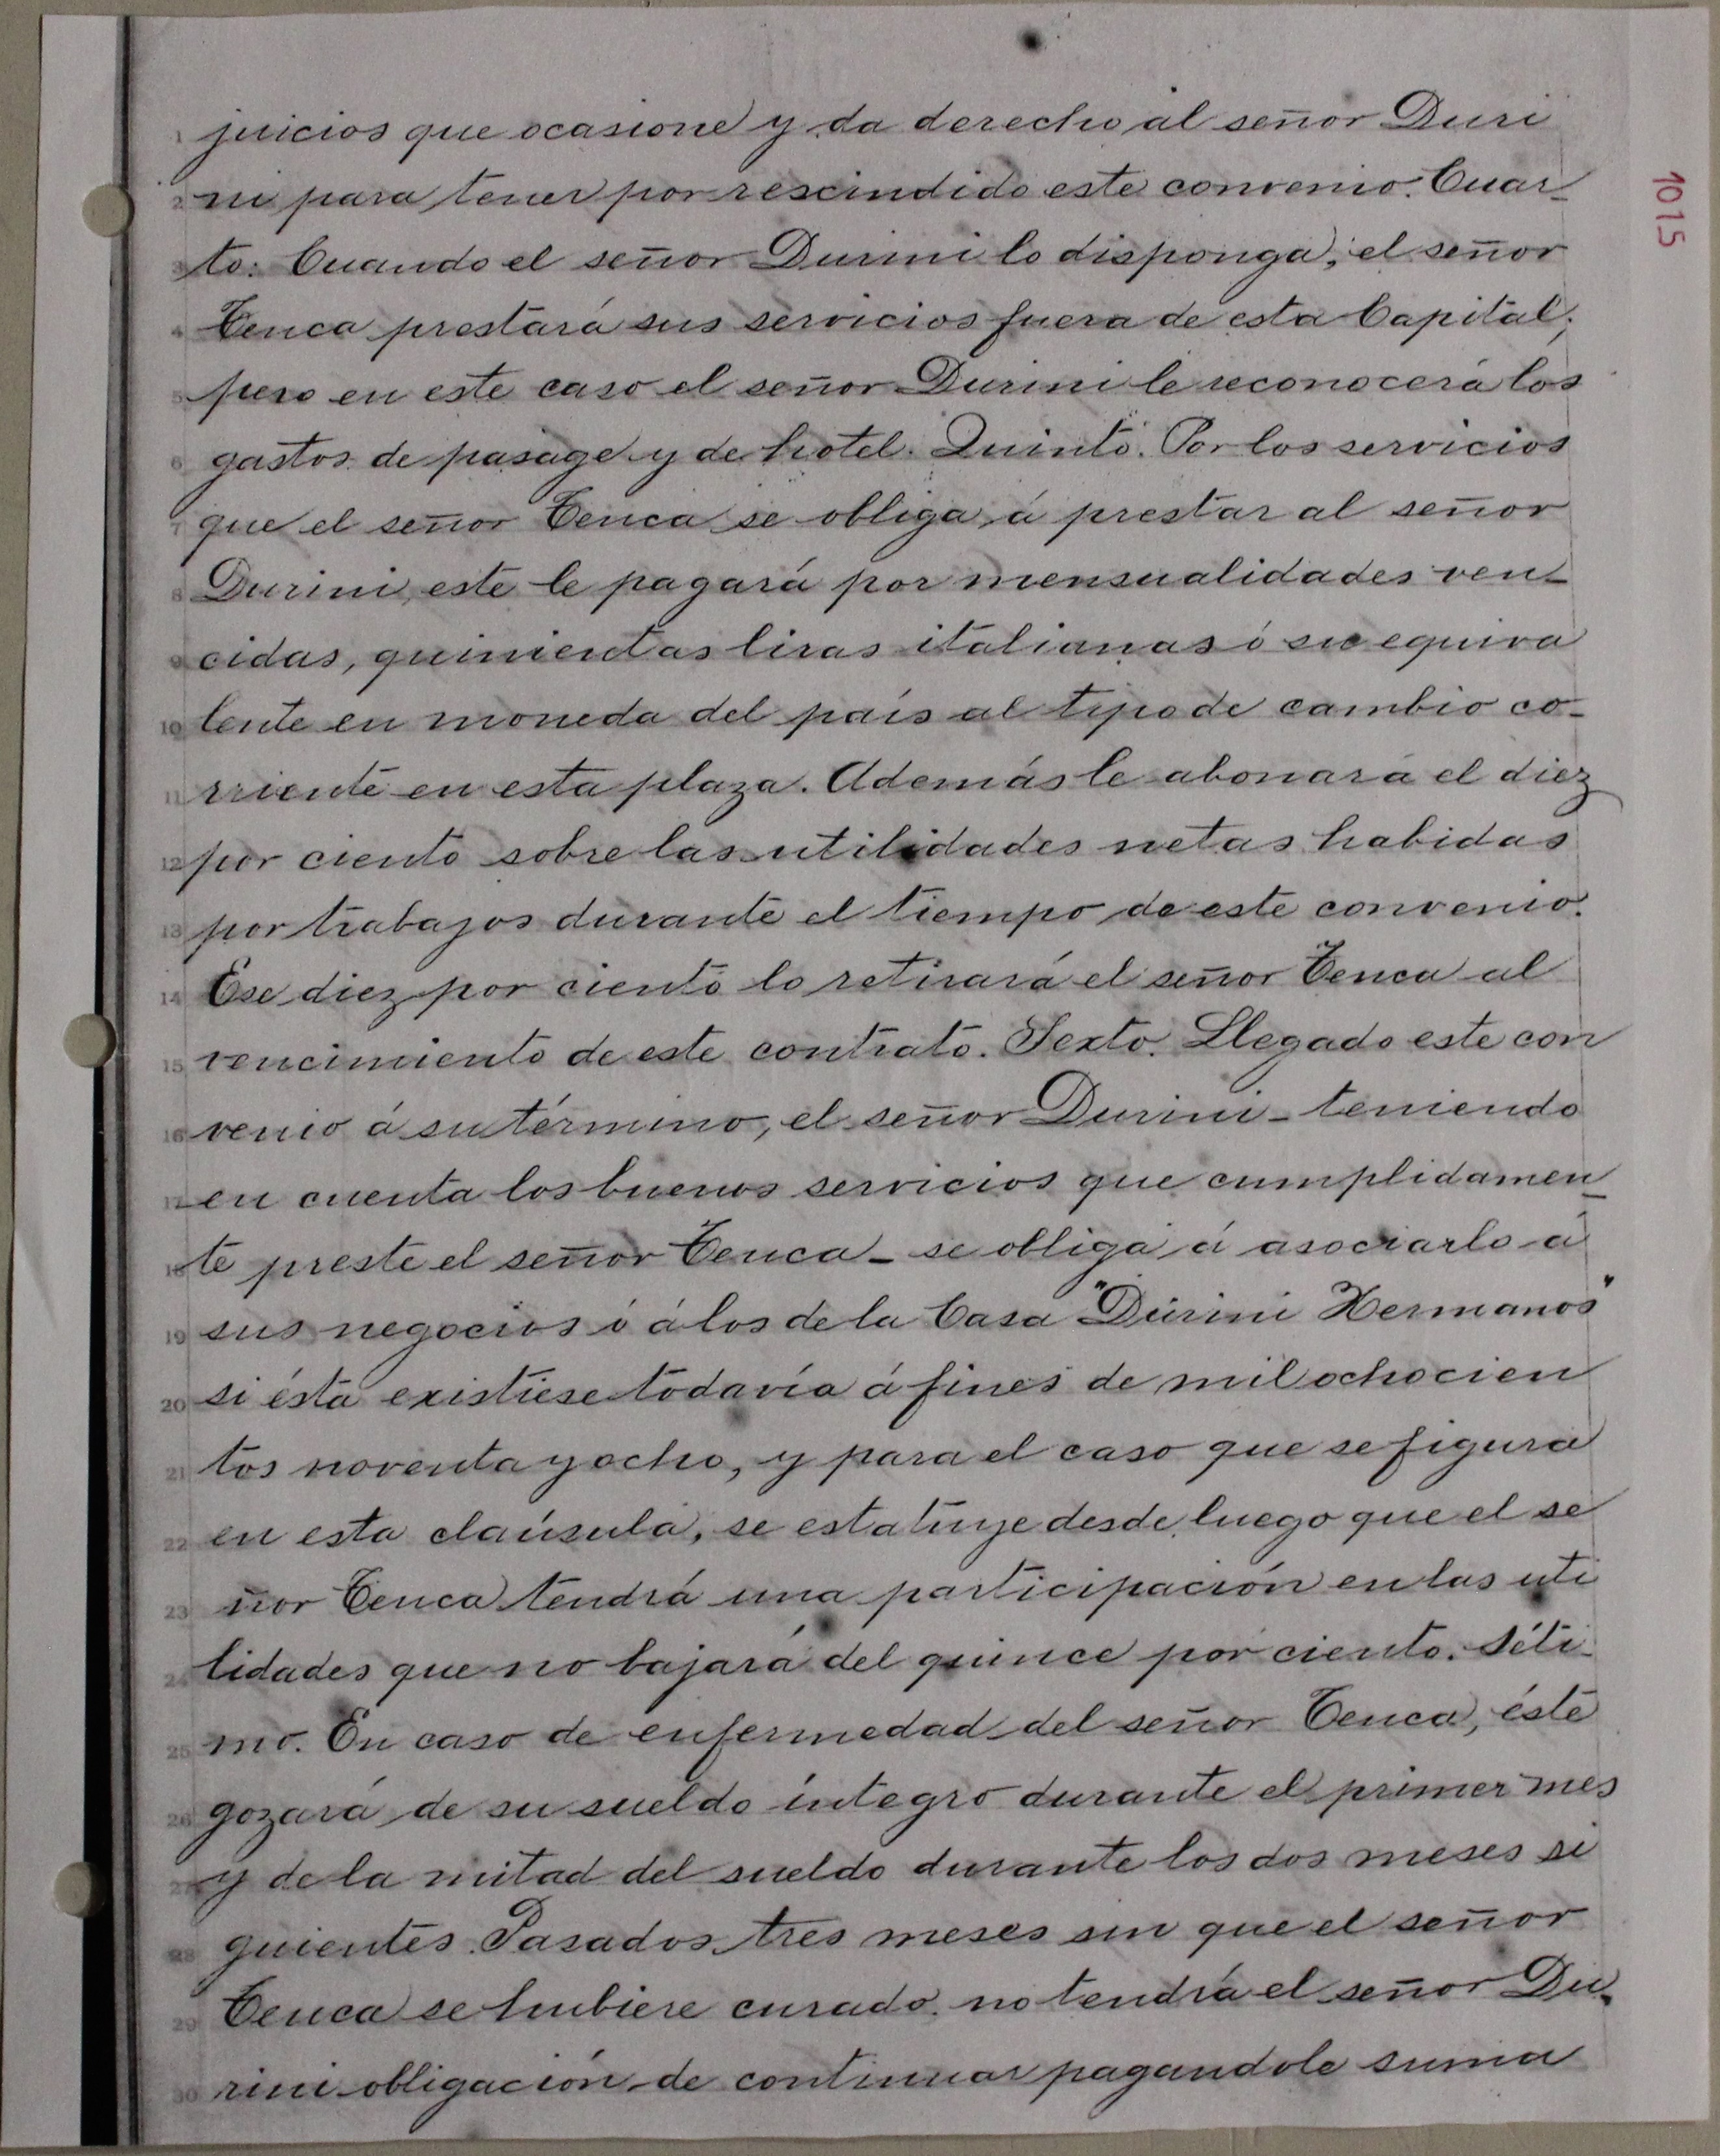 1015
1 juicios que ocasione y da derecho al señor Duri
2 ni para tener por rescindido este convenio. Cuar-
3 to. Cuando el señor Durini lo disponga, el señor
4 Tenca prestará sus servicios fuera de esta Capital;
5 pero en este caso el señor Durini le reconocerá los
6 gastos de pasage y de hotel. Quinto. Por los servicios
7 que el señor Tenca se obliga á prestar al señor
8 Durini, este le pagará por mensualidades ven-
9 cidas, quinientas liras italianas ó su equiva
10 lente en moneda del país al tipo de cambio co-
11 rriente en esta plaza. Además le abonará el diez
12 por ciento sobre las utilidades netas habidas
13 por trabajos durante el tiempo de este convenio.
14 Ese diez por ciento lo retirará el señor Tenca al
15 vencimiento de este contrato. Sexto. Llegado este con
16 venio á su término, el señor Durini - teniendo
17 en cuenta los buenos servicios que cumplidamen-
18 te preste el señor Tenca - se obliga á asociarlo á
19 sus negocios ó á los de la Casa "Durini Hermanos"
20 si ésta existiese todavía á fines de mil ochocien
21 tos noventa y ocho, y para el caso que se figura
22 en esta claúsula, se estatuye desde luego que el se
23 ñor Tenca tendrá una participación en las uti
24 lidades que no bajará del quince por ciento. Séti-
25 mo. En caso de enfermedad del señor Tenca, éste
26 gozará de su sueldo íntegro durante el primer mes
27 y de la mitad del sueldo durante los dos meses si
28 guientes. Pasados tres meses sin que el señor
29 Tenca se hubiere curado, no tendrá el señor Du-
30 rini obligación de continuar pagandole suma